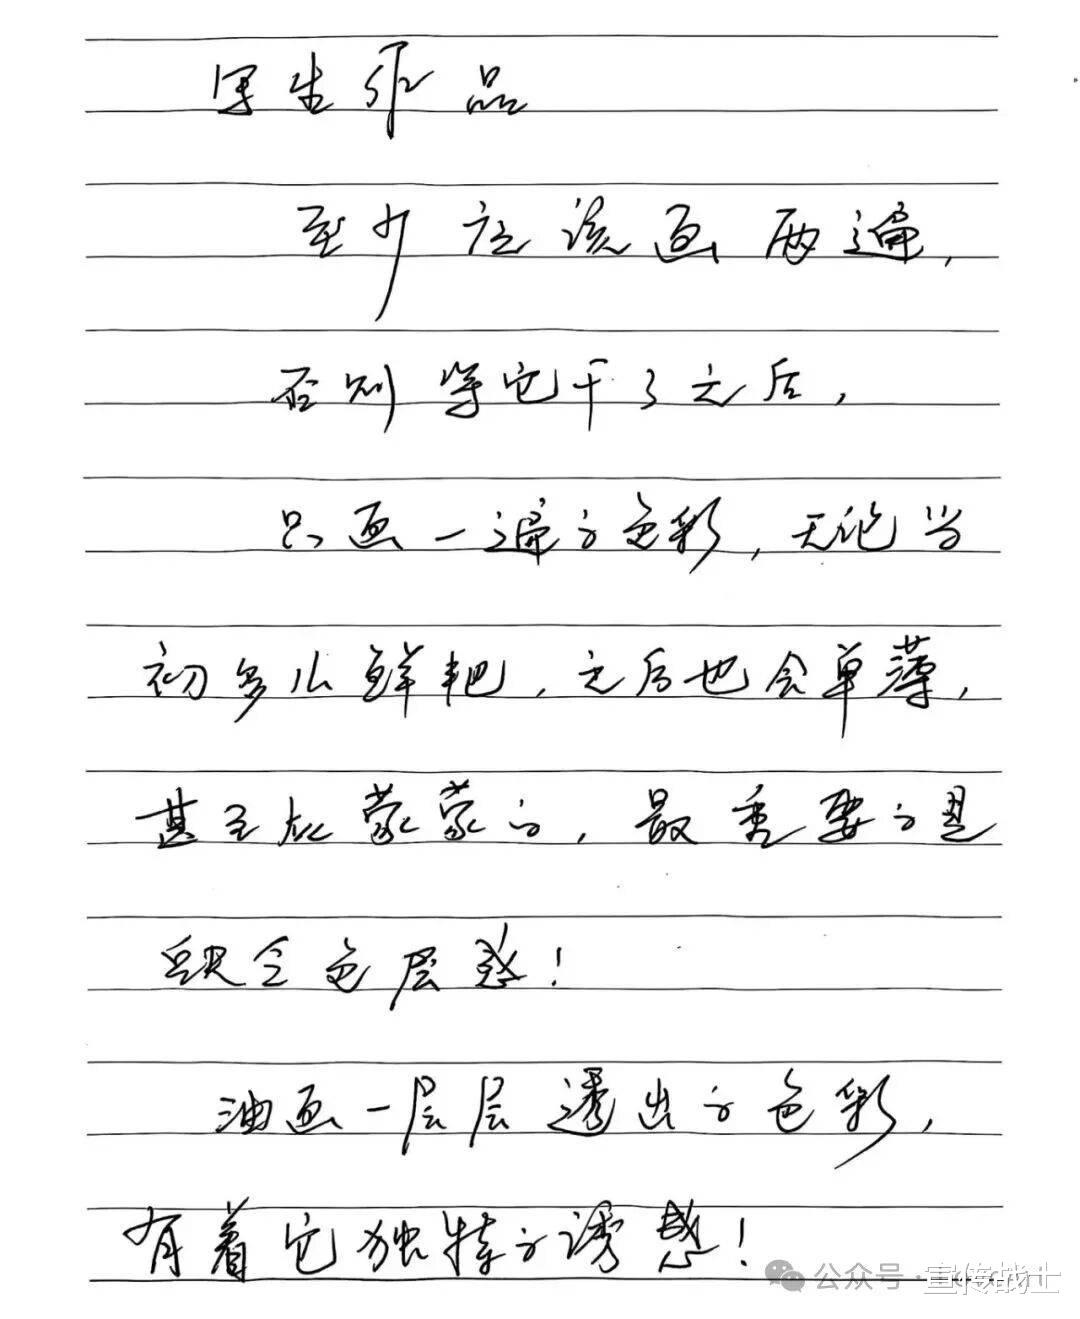 写生作品
至少应该画两遍，
否则等它干了之后，
只画一遍的色彩，无论当
初多么鲜艳，之后也会单薄，
甚至灰蒙蒙的，最重要的是
缺乏色层感！
油画一层层透出的色彩，
有着它独特的诱惑！
公众号·宣传战士